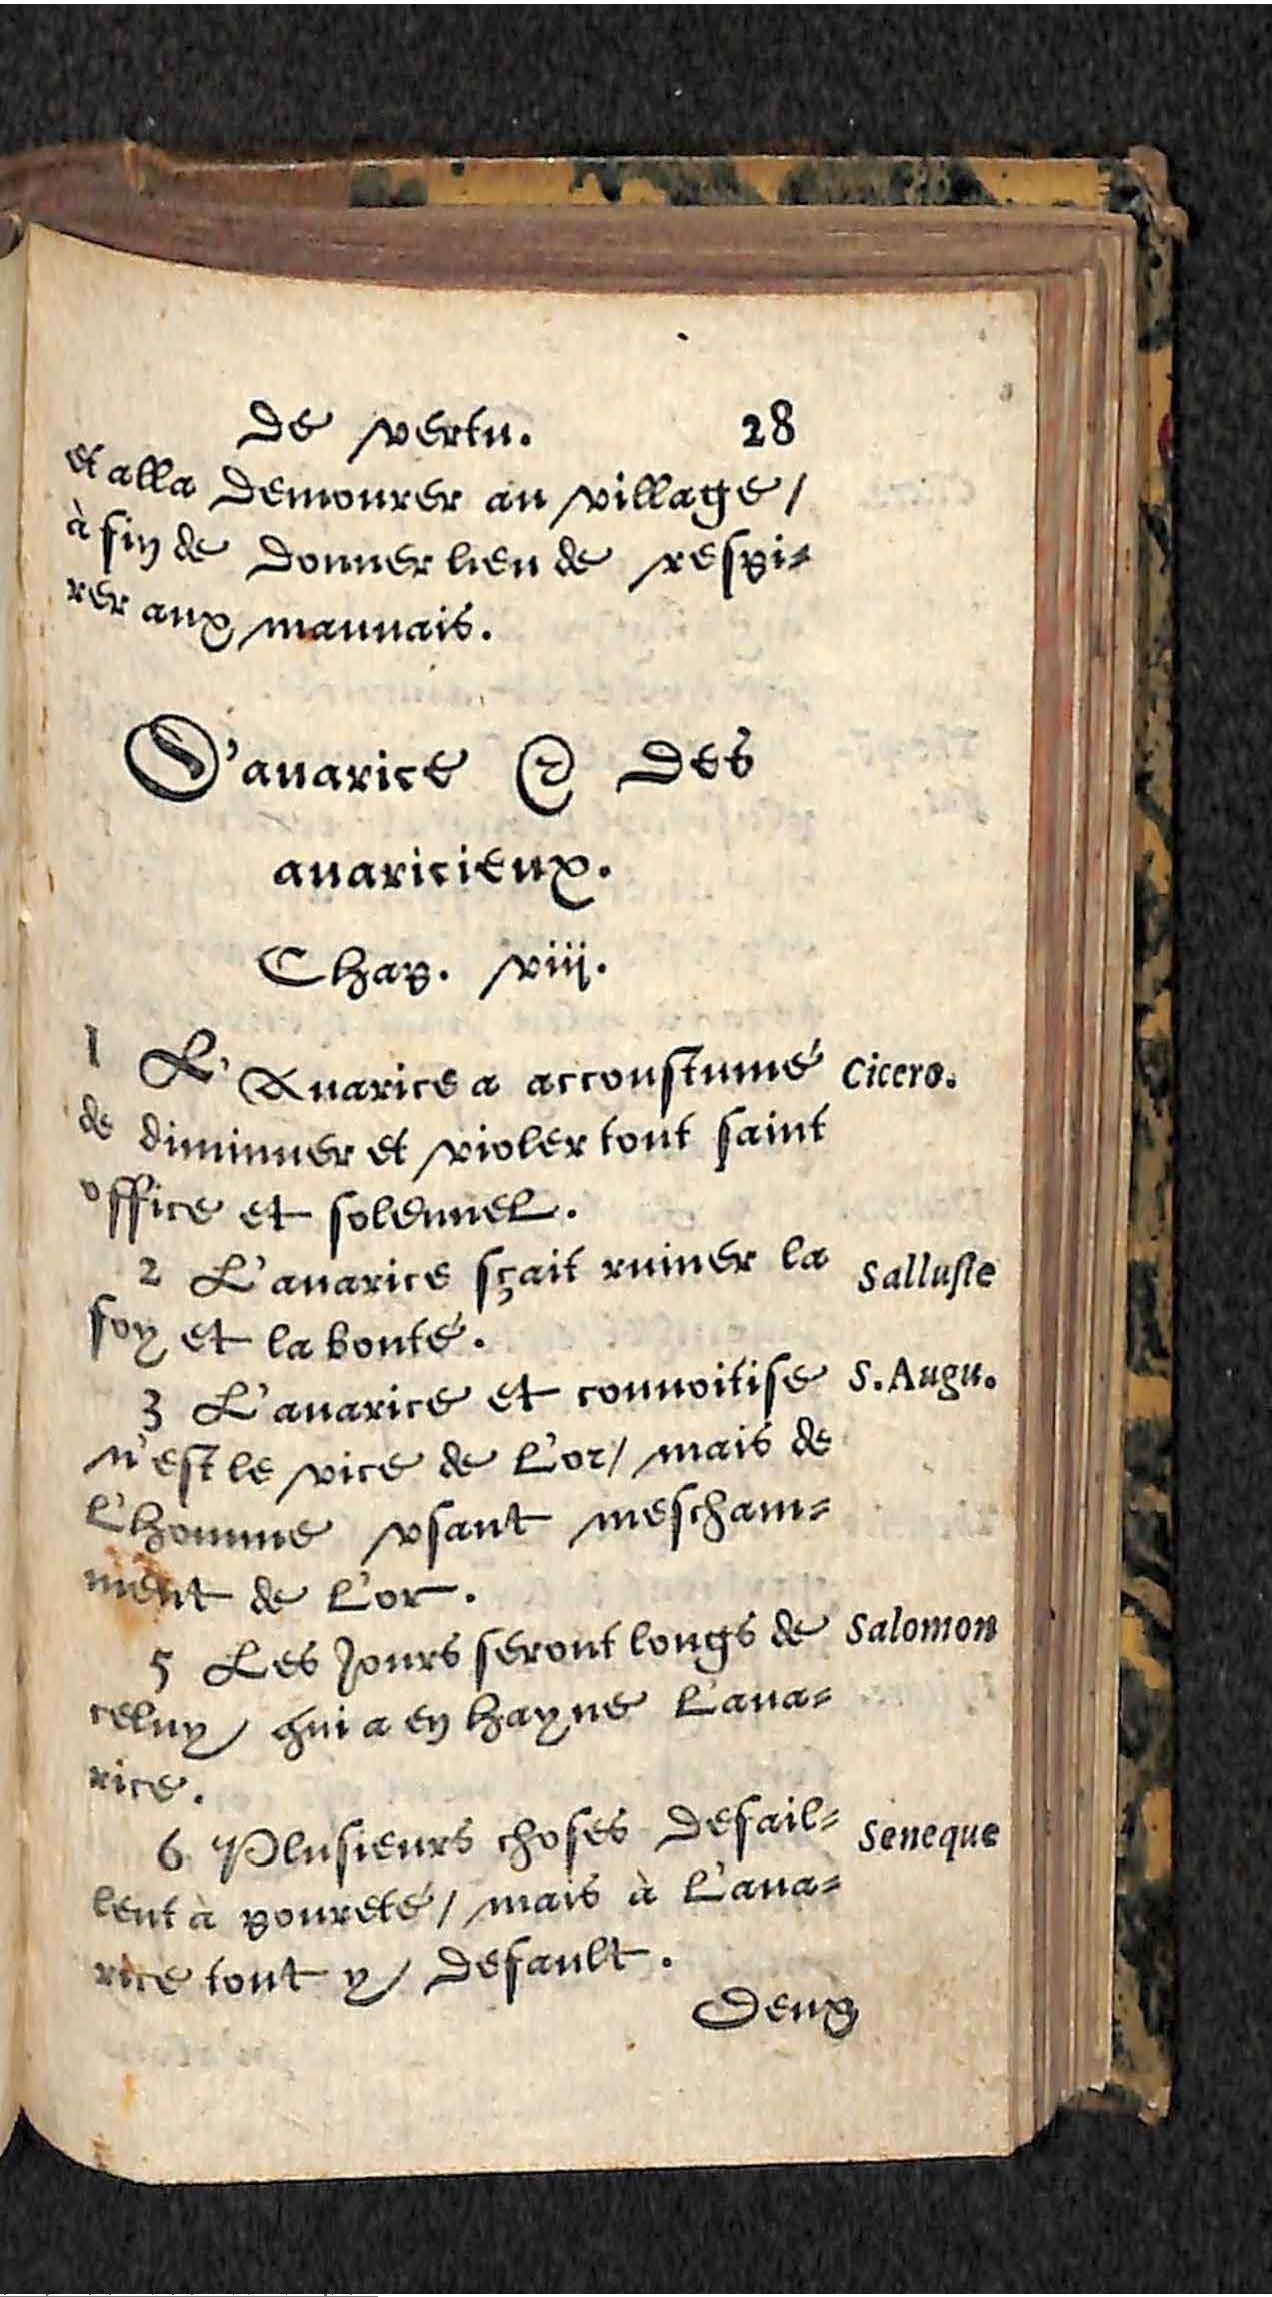 de vertu. 28
et alla demourer au village/
à fin de donner lieu de respi=
rer aux mauuais.
D'auarice & des
auaricieux.
Chap. viii.
1 L'Auarice a accoustumé Cicero.
de diminuer et violer tout saint
office et solennel.
2 L'auarice sçait ruiner la Salluste
foy et la bonté.
3 L'auarice et conuoitise S. Augu.
n'est le vice de l'or/ mais de
l'homme vsant mescham=
ment de l'or.
5 Les Jours seront longs de Salomon
celuy/ qui a en hayne l'aua=
rice.
6 Plusieurs choses defail= Seneque
lent à poureté/ mais à l'aua=
rice tout y/ default.
Deux